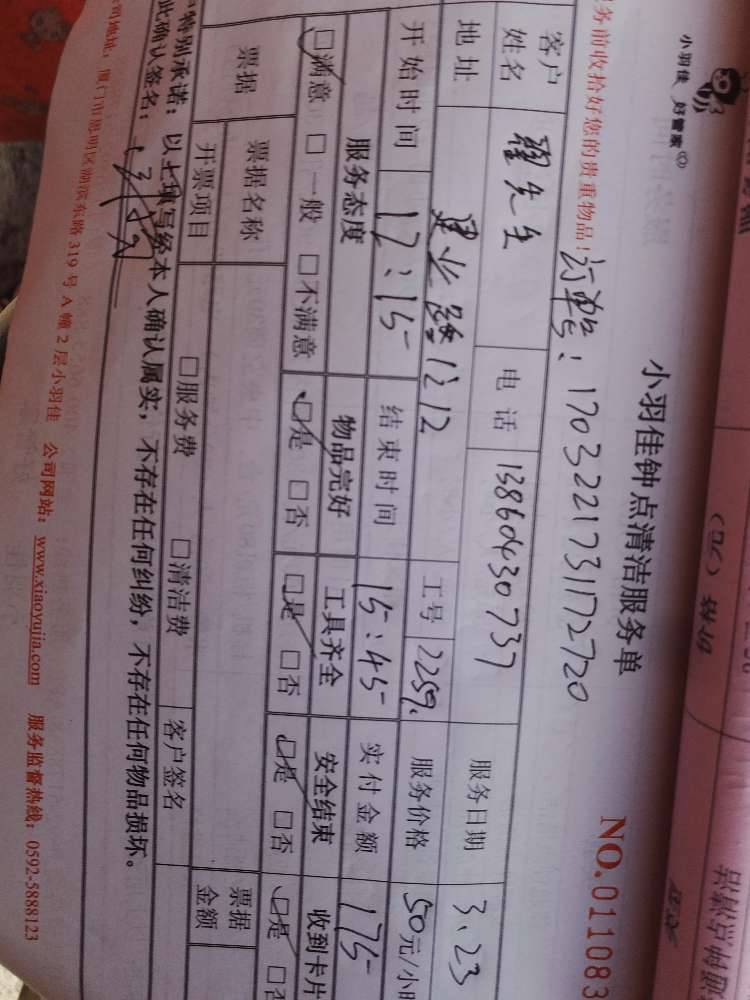 小羽佳 好管家
小羽佳钟点清洁服务单
NO.011083
务前收拾好您的贵重物品！ 订单号：17032217311172720
客户姓名 翟先生 电话 13860430737 服务日期 3.23
地址 建业路 1212 工号 2259 服务价格 50元/小时
开始时间 12:15 结束时间 15:45 实付金额 175
服务态度 物品完好 工具齐全 安全结束 收到卡片
☑满意 □一般 □不满意 ☑是 □否 ☑是 □否 ☑是 □否 ☑是 □否
票据 票据名称 票据金额
开票项目 □服务费 □清洁费 客户签名
特别承诺：以上填写经本人确认属实，不存在任何纠纷，不存在任何物品损坏。
此确认签名：
司地址：厦门市思明区湖滨东路 319 号 A 幢 2 层小羽佳 公司网站：www.xiaoyujia.com 服务监督热线：0592-5888123